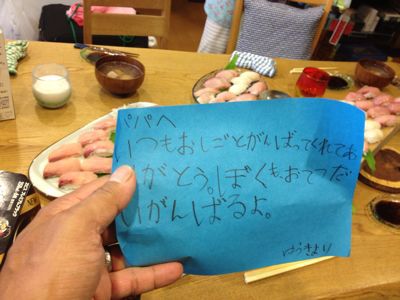 パパへ
いつもおしごとがんばってくれてあ
りがとう。ぼくもおてつだ
いがんばるよ。
ゆうきより